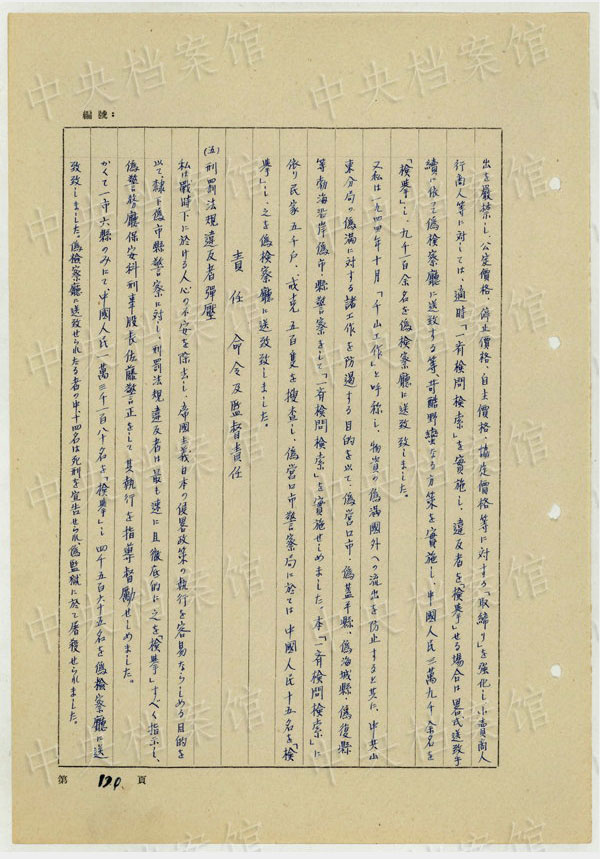 編號：
出を嚴禁し、公定價格、停止價格、自主價格、協定價格等に対する「取締り」を強化し小賣商人
行商人等に対しては、適時「一斉検問検索」を實施し、違反者を「検挙」せる場合は畧式送致手
續に依って偽検察廳に送致する等、苛酷野蛮なる方策を實施し、中國人民二萬九千余名を
「検挙」し、九千一百余名を偽検察廳に送致致しました。
又私は一九四四年十月「千山工作」と呼称し、物資の偽満國外への流出を防止すると共に、中共山
東分局の偽満に対する諸工作を防遏する目的を以て、偽營口市、偽蓋平縣、偽海城縣、偽復縣
等渤海沿岸偽市、縣警察をして「一斉検問検索」を實施せしめました。本「一斉検問検索」に
依り民家五千戸、戎克五百隻を捜査し、偽營口市警察局に於ては中國人民十五名を「検
挙」し、之を偽検察廳に送致致しました。
責任 命令及監督責任
(五)刑罰法規違反者弾壓
私は戰時下に於ける人心の不安を除去し、帝國主義日本の侵畧政策の執行を容易ならしめる目的を
以て、隷下偽市縣警察に対し、刑罰法規違反者は最も速に且徹底的に之を検挙すべく指示し、
偽警務廳保安科刑事股長佐藤警正をして其執行を指導督勵せしめました。
かくて一市六縣のみにて、中國人民一萬三千一百八十名を「検挙」し四千五百六十五名を偽検察廳に送
致致しました。偽検察廳に送致せられたる者の中十四名は死刑を宣告せられ、偽監獄に於て屠殺せられました。
第 120 頁
中央档案馆